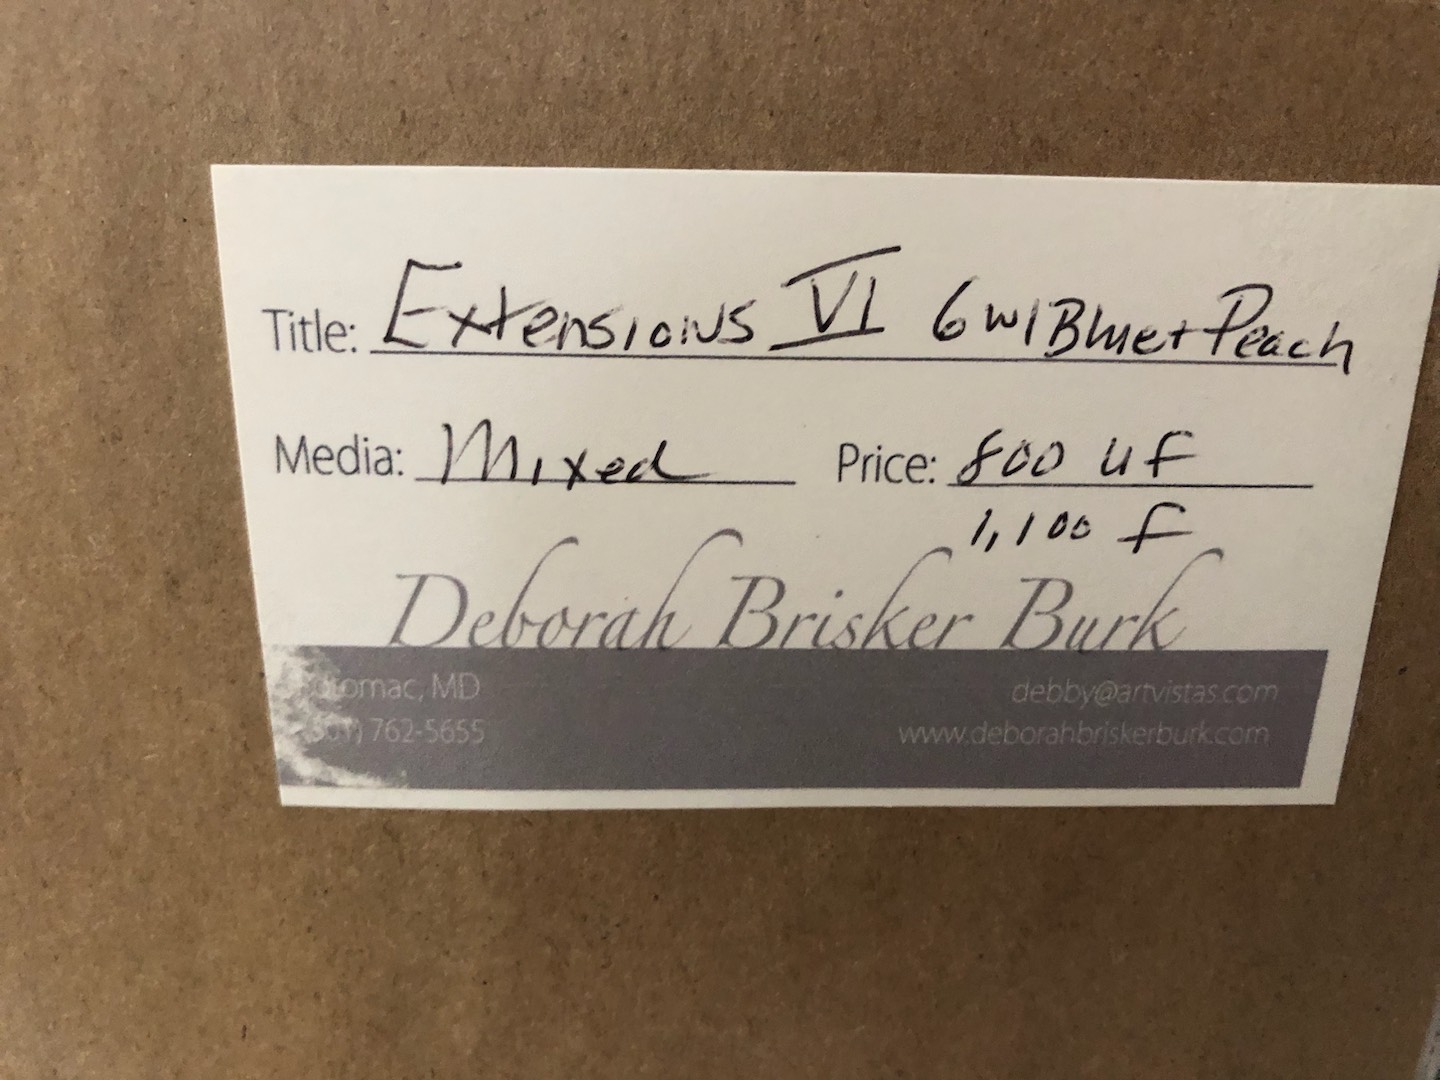 Title: Extensions VI 6 w/ Blue + Peach
Media: Mixed Price: 800 uf
1,100 f
Deborah Brisker Burk
MD
762-5655
debby@artvistas.com
www.deborahbriskerburk.com